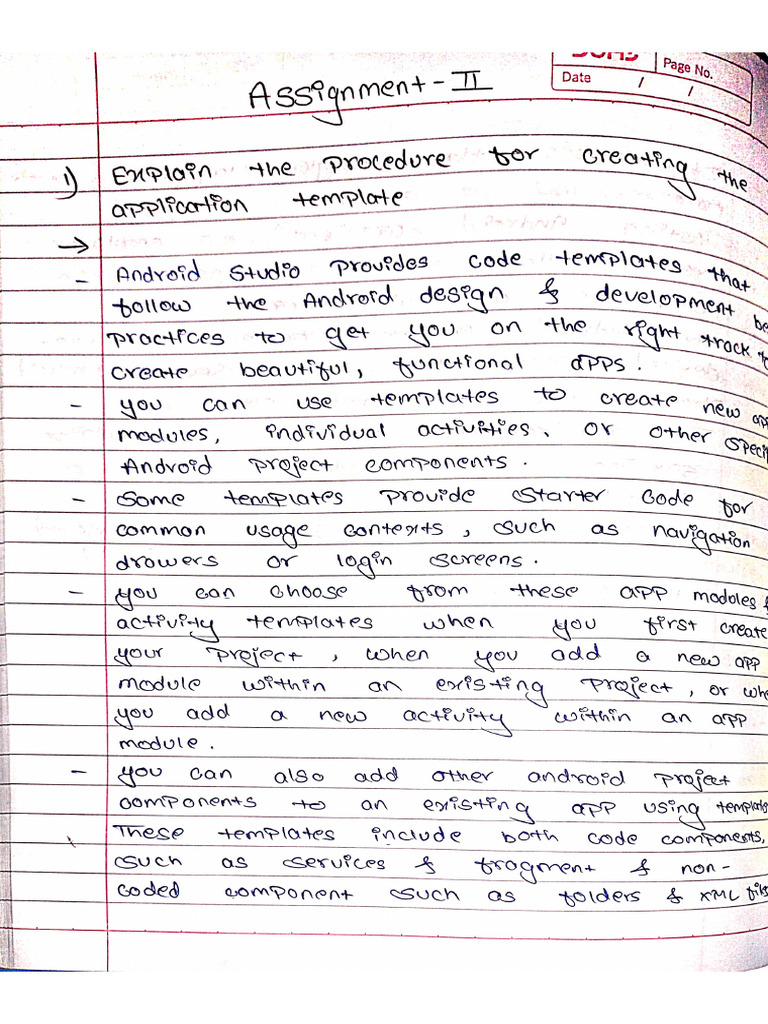 Page No.
Date / /
Assignment - II
1) Explain the procedure for creating the
application template
→
- Android Studio provides code templates that
follow the Android design & development be
practices to get you on the right track to
create beautiful, functional apps.
- you can use templates to create new app
modules, individual activities, or other specif
Android project components.
- Some templates provide starter code for
common usage contexts, such as navigation
drowers or login screens.
- you can choose from these app modules &
activity templates when you first create
your project, when you add a new app
module within an existing project, or whe
you add a new activity within an app
module.
- you can also add other android project
components to an existing app using templates
These templates include both code components,
such as services & fragment & non-
coded component such as folders & XML files